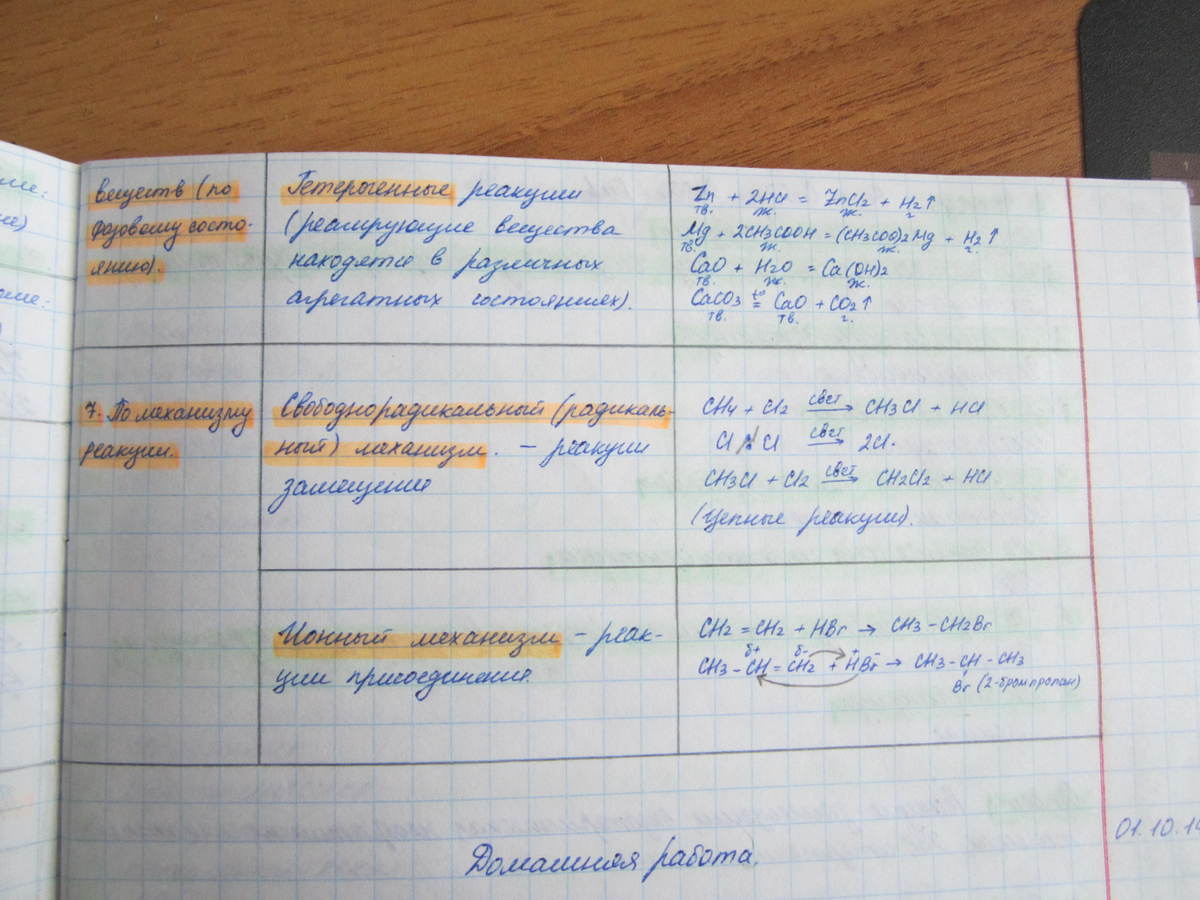 веществ (по
фазовому состо-
янию).
Гетерогенные реакции
(реагирующие вещества
находятся в различных
агрегатных состояниях).
Zn + 2HCl = ZnCl2 + H2↑
тв. ж. ж. г.
Mg + 2CH3COOH = (CH3COO)2Mg + H2↑
тв. ж. ж. г.
CaO + H2O = Ca(OH)2
тв. ж. ж.
CaCO3 t°= CaO + CO2↑
тв. тв. г.
7. По механизму
реакции.
Свободнорадикальный (радикаль-
ный) механизм. – реакции
замещения
CH4 + Cl2 свет→ CH3Cl + HCl
Cl : Cl свет→ 2Cl·
CH3Cl + Cl2 свет→ CH2Cl2 + HCl
(Цепные реакции).
Ионный механизм – реак-
ции присоединения.
CH2 = CH2 + HBr → CH3 – CH2Br
δ+ δ- + -
CH3 – CH = CH2 + HBr → CH3 – CH – CH3
Br (2-бромпропан)
Домашняя работа.
01.10.1